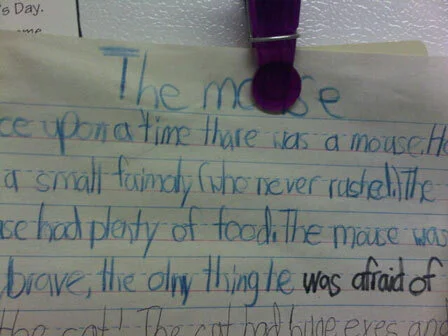 s Day.
The mouse
ce upon a time thare was a mouse. He
a small faimaly (who never rushed). The
use had plenty of food. The mouse was
brave, the olny thing he was afraid of
the cat! The cat had blue eyes and